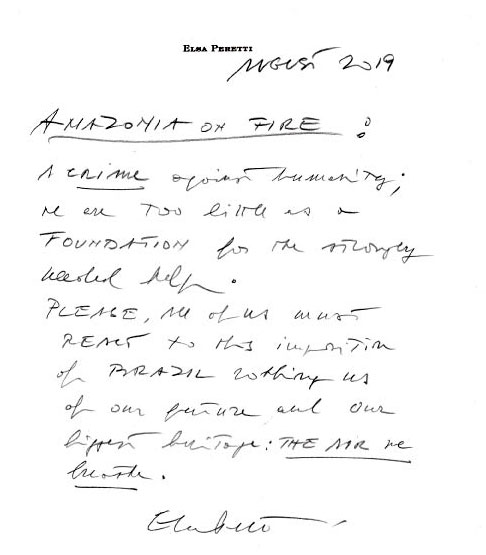 ELSA PERETTI
AUGUST 2019
AMAZONIA ON FIRE :
A CRIME against humanity;
we are TOO little as a
FOUNDATION for the strongly
needed help.
PLEASE, all of us must
REACT to this imposition
of BRAZIL robbing us
of our future and our
biggest heritage: THE AIR we
breathe.
Elsa Peretti